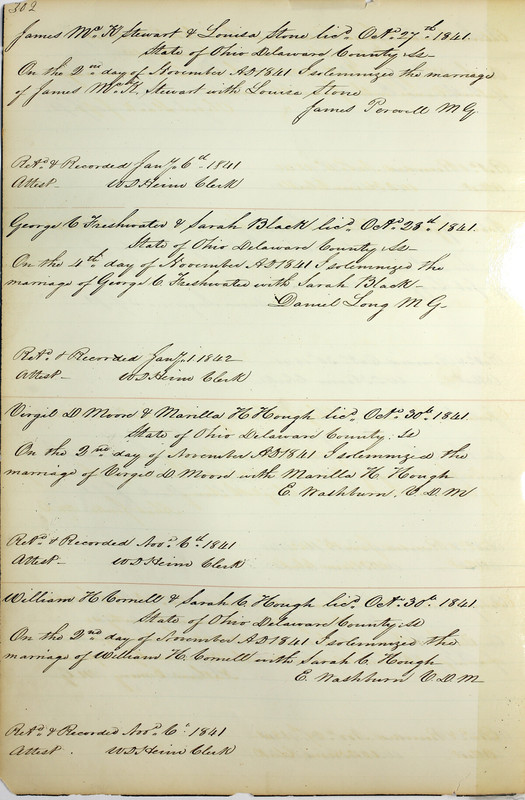 302
James Mc K Stewart & Louisa Stone licd. Octr. 27th 1841.
State of Ohio Delaware County Ss
On the 2nd day of November AD 1841 I solemnized the marriage
of James Mc K. Stewart with Louisa Stone
James M G.
Retd. & Recorded Jany. 6th 1841
Attest W D Heim Clerk
George C Freshwater & Sarah Black licd. Octr. 28th 1841.
State of Ohio Delaware County Ss
On the 4th day of November AD 1841 I solemnized the
marriage of George C. Freshwater with Sarah Black
Daniel Long M G
Retd. & Recorded Jany. 1 1842
Attest W D Heim Clerk
Virgil D Moore & Marilla H Hough licd. Octr. 30th 1841.
State of Ohio Delaware County. Ss
On the 2nd day of November AD 1841 I solemnized the
marriage of Virgil D. Moore with Marilla H. Hough
E. Washburn. V. D. M
Retd. & Recorded Novr. 6th 1841
Attest W D Heim Clerk
William H Cornell & Sarah C. Hough licd. Octr. 30th 1841.
State of Ohio Delaware County: Ss
On the 2nd day of November AD 1841 I solemnized the
marriage of William H. Cornell with Sarah C. Hough
E. Washburn V. D. M
Retd. & Recorded Novr. 6th 1841
Attest. W D Heim Clerk